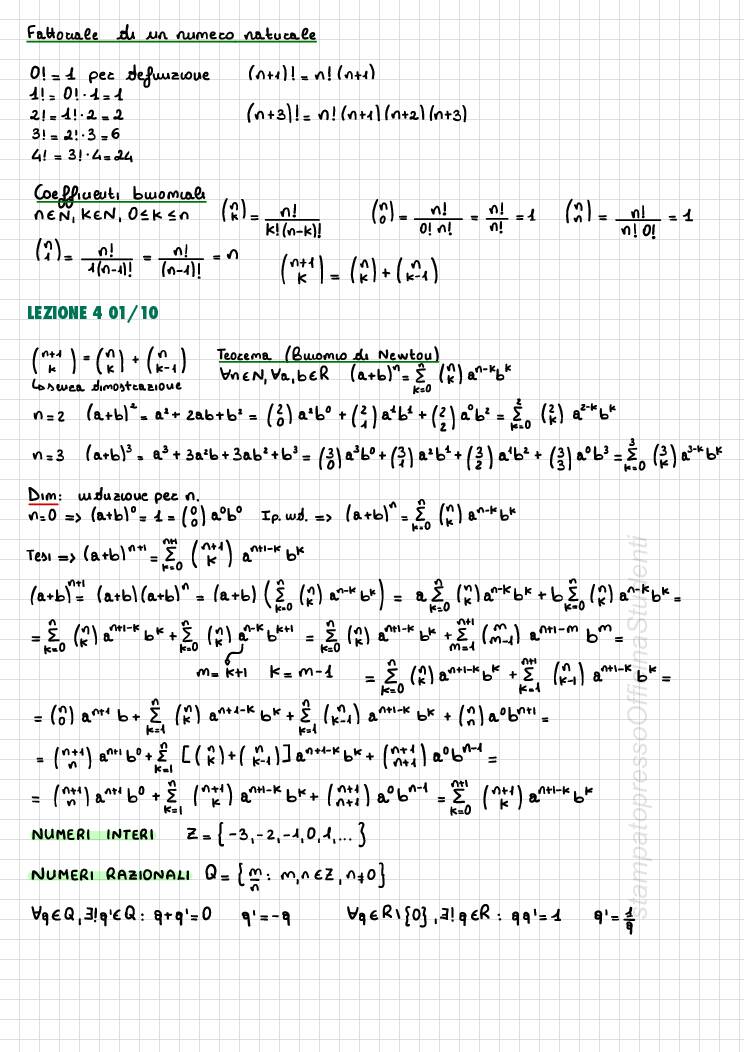 Fattoriale di un numero naturale
0! = 1 per definizione (n+1)! = n! (n+1)
1! = 0! · 1 = 1
2! = 1! · 2 = 2 (n+3)! = n! (n+1) (n+2) (n+3)
3! = 2! · 3 = 6
4! = 3! · 4 = 24
Coefficienti binomiali
n∈N, k∈N, 0≤k≤n (n k) = n!/k!(n-k)! (n 0) = n!/0! n! = n!/n! = 1 (n n) = n!/n! 0! = 1
(n 1) = n!/1(n-1)! = n!/(n-1)! = n (n+1 k) = (n k) + (n k-1)
LEZIONE 4 01/10
(n+1 k) = (n k) + (n k-1) Teorema (Binomio di Newton)
↳ senza dimostrazione ∀n∈N, ∀a,b∈R (a+b)^n = Σ_{k=0}^{n} (n k) a^{n-k} b^k
n=2 (a+b)² = a² + 2ab + b² = (2 0) a²b⁰ + (2 1) a¹b¹ + (2 2) a⁰b² = Σ_{k=0}^{2} (2 k) a^{2-k} b^k
n=3 (a+b)³ = a³ + 3a²b + 3ab² + b³ = (3 0) a³b⁰ + (3 1) a²b¹ + (3 2) a¹b² + (3 3) a⁰b³ = Σ_{k=0}^{3} (3 k) a^{3-k} b^k
Dim: induzione per n.
n=0 => (a+b)⁰ = 1 = (0 0) a⁰b⁰ Ip. ind. => (a+b)^n = Σ_{k=0}^{n} (n k) a^{n-k} b^k
Tesi => (a+b)^{n+1} = Σ_{k=0}^{n+1} (n+1 k) a^{n+1-k} b^k
(a+b)^{n+1} = (a+b)(a+b)^n = (a+b) (Σ_{k=0}^{n} (n k) a^{n-k} b^k) = a Σ_{k=0}^{n} (n k) a^{n-k} b^k + b Σ_{k=0}^{n} (n k) a^{n-k} b^k =
= Σ_{k=0}^{n} (n k) a^{n+1-k} b^k + Σ_{k=0}^{n} (n k) a^{n-k} b^{k+1} = Σ_{k=0}^{n} (n k) a^{n+1-k} b^k + Σ_{m=1}^{n+1} (m m-1) a^{n+1-m} b^m =
m = k+1 k = m-1 = Σ_{k=0}^{n} (n k) a^{n+1-k} b^k + Σ_{k=1}^{n+1} (n k-1) a^{n+1-k} b^k =
= (n 0) a^{n+1} b + Σ_{k=1}^{n} (n k) a^{n+1-k} b^k + Σ_{k=1}^{n} (n k-1) a^{n+1-k} b^k + (n n) a⁰ b^{n+1} =
= (n+1 n) a^{n+1} b⁰ + Σ_{k=1}^{n} [(n k) + (n k-1)] a^{n+1-k} b^k + (n+1 n+1) a⁰ b^{n-1} =
= (n+1 n) a^{n+1} b⁰ + Σ_{k=1}^{n} (n+1 k) a^{n+1-k} b^k + (n+1 n+1) a⁰ b^{n-1} = Σ_{k=0}^{n+1} (n+1 k) a^{n+1-k} b^k
NUMERI INTERI Z = {-3, -2, -1, 0, 1, ...}
NUMERI RAZIONALI Q = {m/n : m,n∈Z, n≠0}
∀q∈Q, ∃!q'∈Q : q+q'=0 q'=-q ∀q∈R\{0}, ∃!q∈R : qq'=1 q'=1/q
stampatopressoOfficinaStudenti